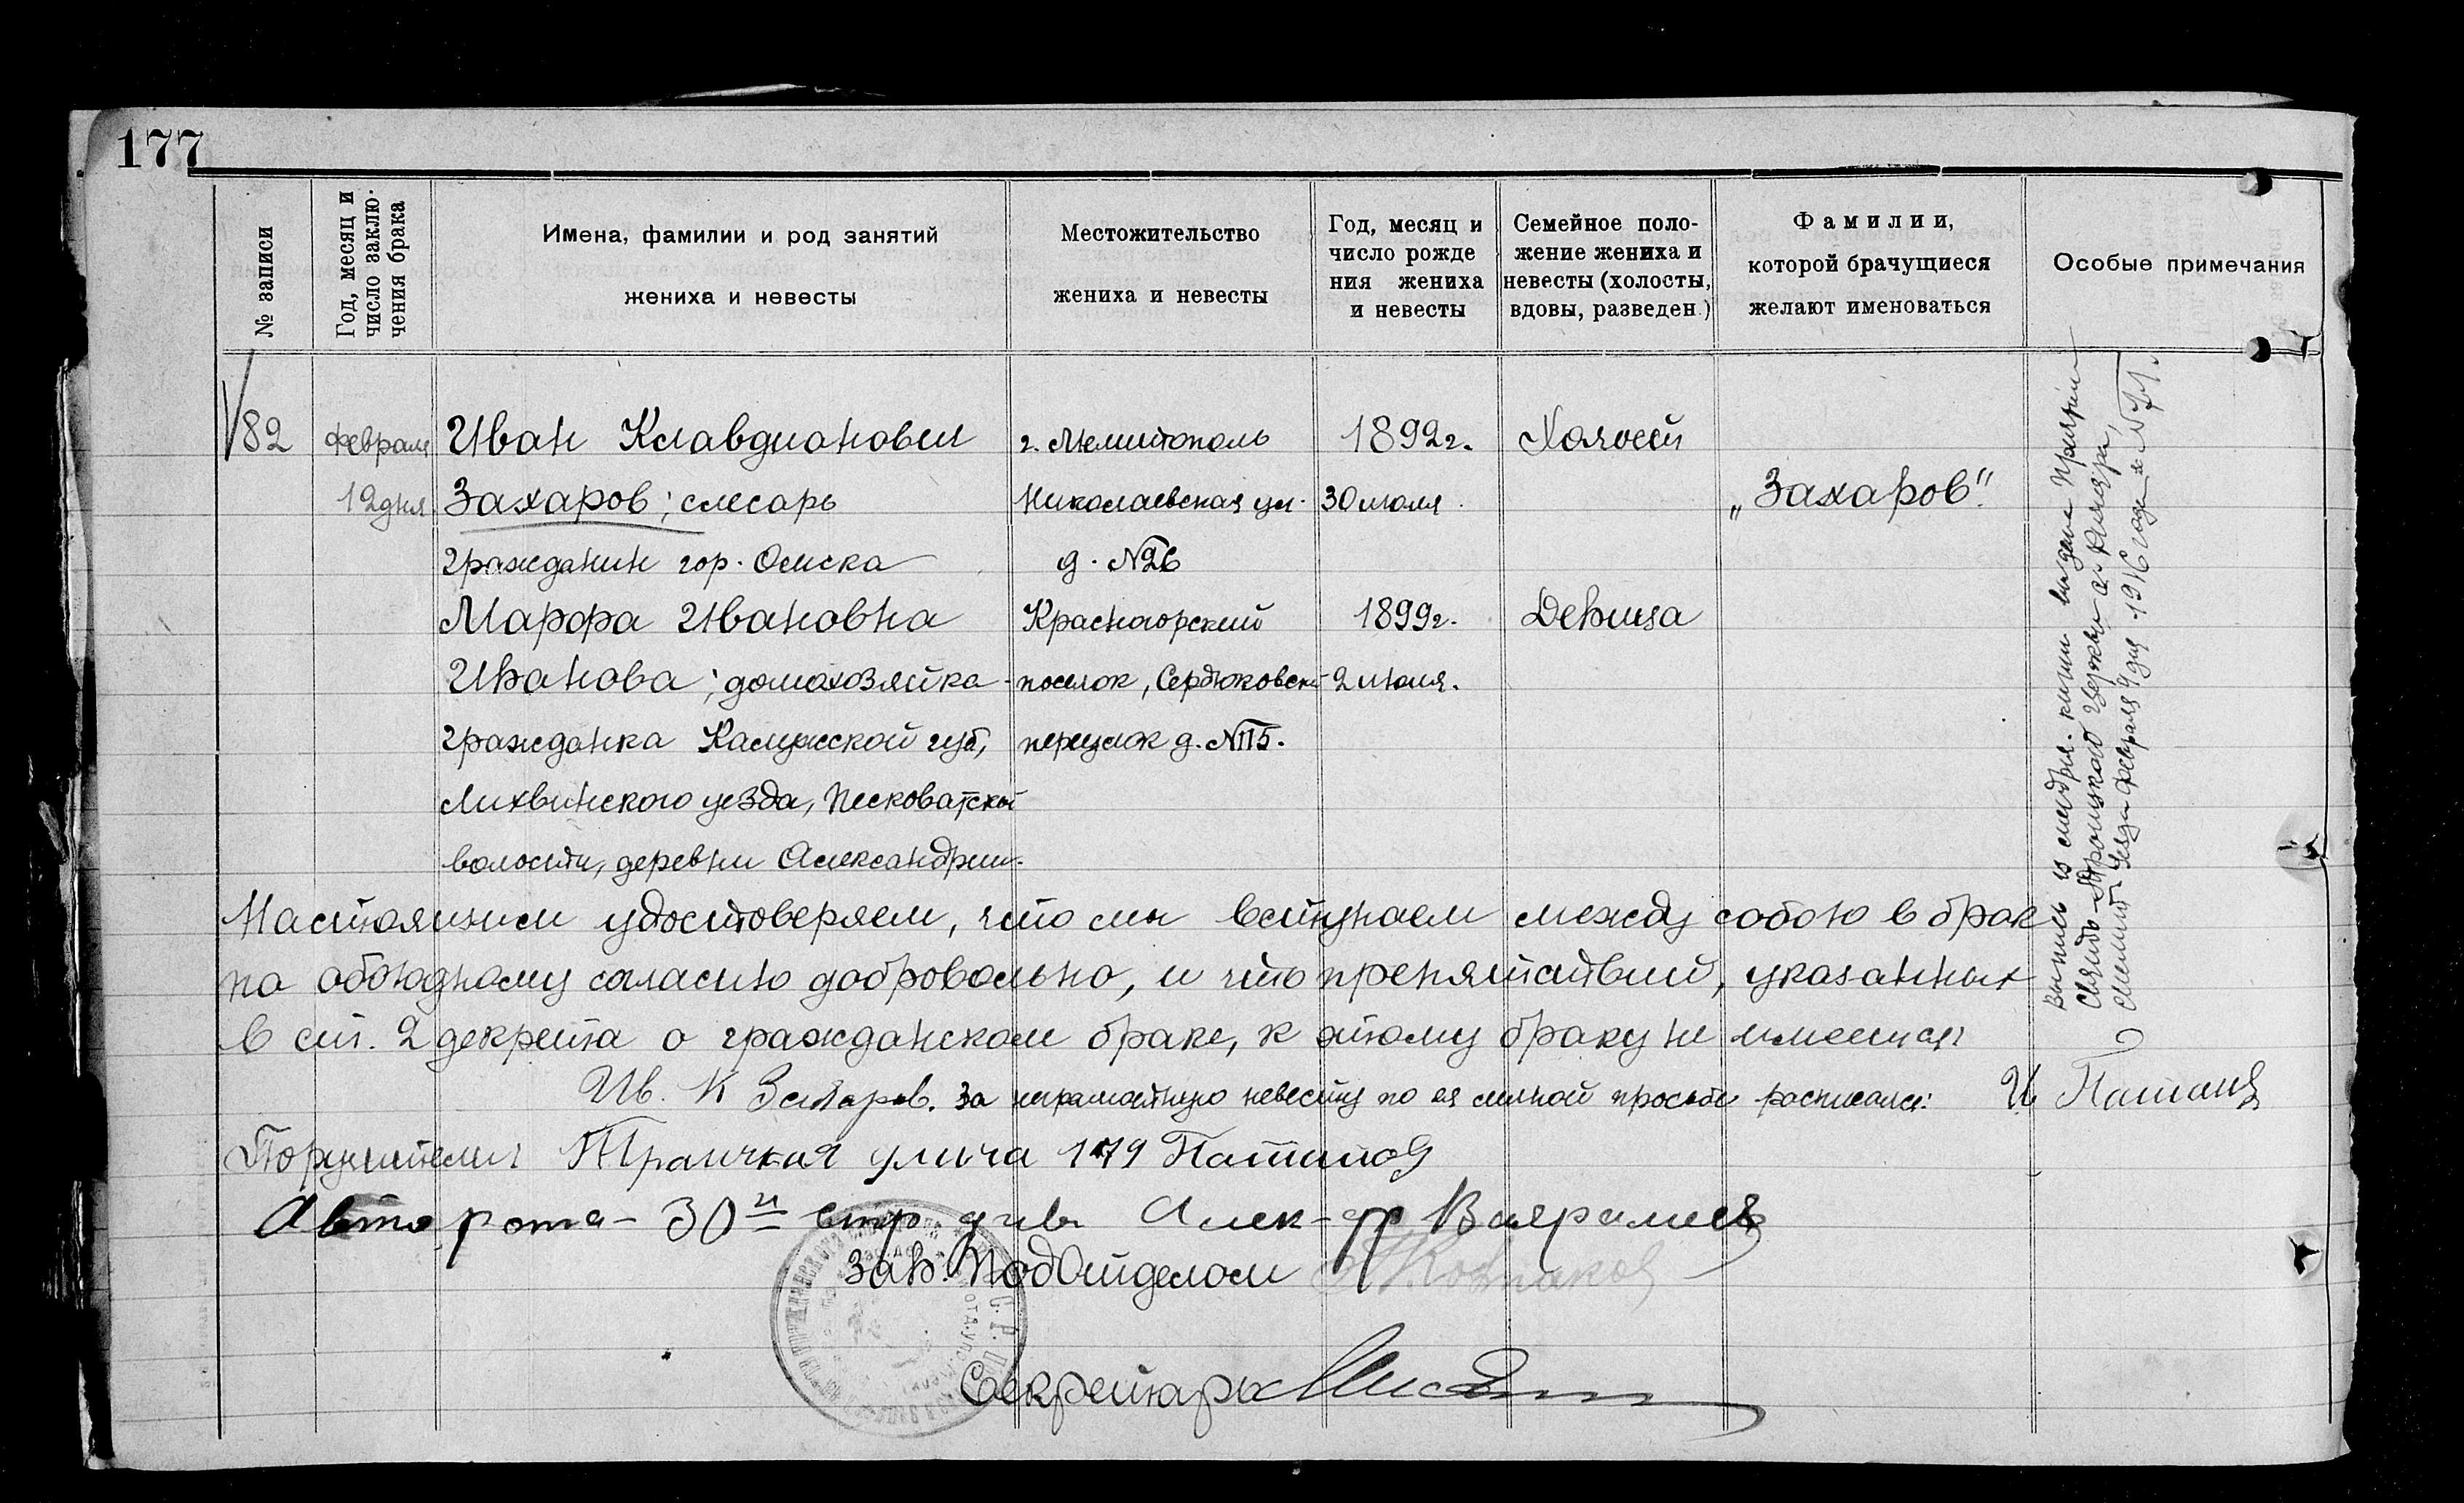 177
№ записи
Год, месяц и
число заклю-
чения брака
Имена, фамилии и род занятий
жениха и невесты
Местожительство
жениха и невесты
Год, месяц и
число рожде
ния жениха
и невесты
Семейное поло-
жение жениха и
невесты (холосты,
вдовы, разведен.)
Фамилии,
которой брачущиеся
желают именоваться
Особые примечания
82 февраля Иван Клавдианович г. Мелитополь 1892г. Холост
12 дня Захаров; слесарь Николаевская ул. 30 июля „Захаров".
гражданин гор. Омска д. №26
Марфа Ивановна Красногорский 1899г. Девица
Иванова; домохозяйка- поселок, Сердюковский 2 июля.
гражданка Калужской губ, переулок д. №115.
Лихвинского уезда, Песковатской
волости, деревни Александрии.
Настоящим удостоверяем, что мы вступаем между собою в брак
по обоюдному согласию добровольно, и что препятствий, указанных
в ст. 2 декрета о гражданском браке, к этому браку не имеется
Ив. К Захаров. За неграмотную невесту по ея личной просьбе расписался:
Поручители: Траичкая улича 179
Авто рота - 30й стр див Алек-др
Зав. Подотделом
Секретарь
Выпись из метрич. книги выдана Причтом
Свято-Троицкой церкви
Мелит. уезда февраля 9 дня 1916 года за №71.